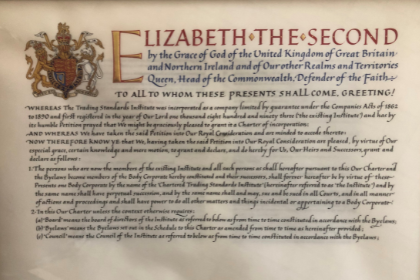 ELIZABETH THE SECOND
by the Grace of God of the United Kingdom of Great Britain
and Northern Ireland and of Our other Realms and Territories
Queen, Head of the Commonwealth, Defender of the Faith
TO ALL TO WHOM THESE PRESENTS SHALL COME, GREETING!
WHEREAS The Trading Standards Institute was incorporated as a company limited by guarantee under the Companies Acts of 1862
to 1890 and first registered in the year of Our Lord one thousand eight hundred and ninety three ('the existing Institute') and has by
its humble Petition prayed that We might be graciously pleased to grant it a Charter of incorporation:
AND WHEREAS We have taken the said Petition into Our Royal Consideration and are minded to accede thereto:
NOW THEREFORE KNOW YE that We, having taken the said Petition into Our Royal Consideration are pleased, by virtue of Our
especial grace, certain knowledge and mere motion, to grant and declare, and do hereby for Us, Our Heirs and Successors, grant and
declare as follows:
1: The persons who are now the members of the existing Institute and all such persons as shall hereafter pursuant to this Our Charter and
the Byelaws become members of the Body Corporate hereby constituted and their successors, shall forever hereafter be by virtue of these
Presents one Body Corporate by the name of The Chartered Trading Standards Institute' (hereinafter referred to as 'the Institute') and by
the same name shall have perpetual succession, and by the same name shall and may, sue and be sued in all Courts, and in all manner
of actions and proceedings and shall have power to do all other matters and things incidental or appertaining to a Body Corporate:
2: In this Our Charter unless the context otherwise requires:
(a) 'Board' means the board of directors of the Institute as referred to below as from time to time constituted in accordance with the Byelaws;
(b) 'Byelaws' means the Byelaws set out in the Schedule to this Charter as amended from time to time as hereinafter provided;
(c) 'Council' means the Council of the Institute as referred to below as from time to time constituted in accordance with the Byelaws;